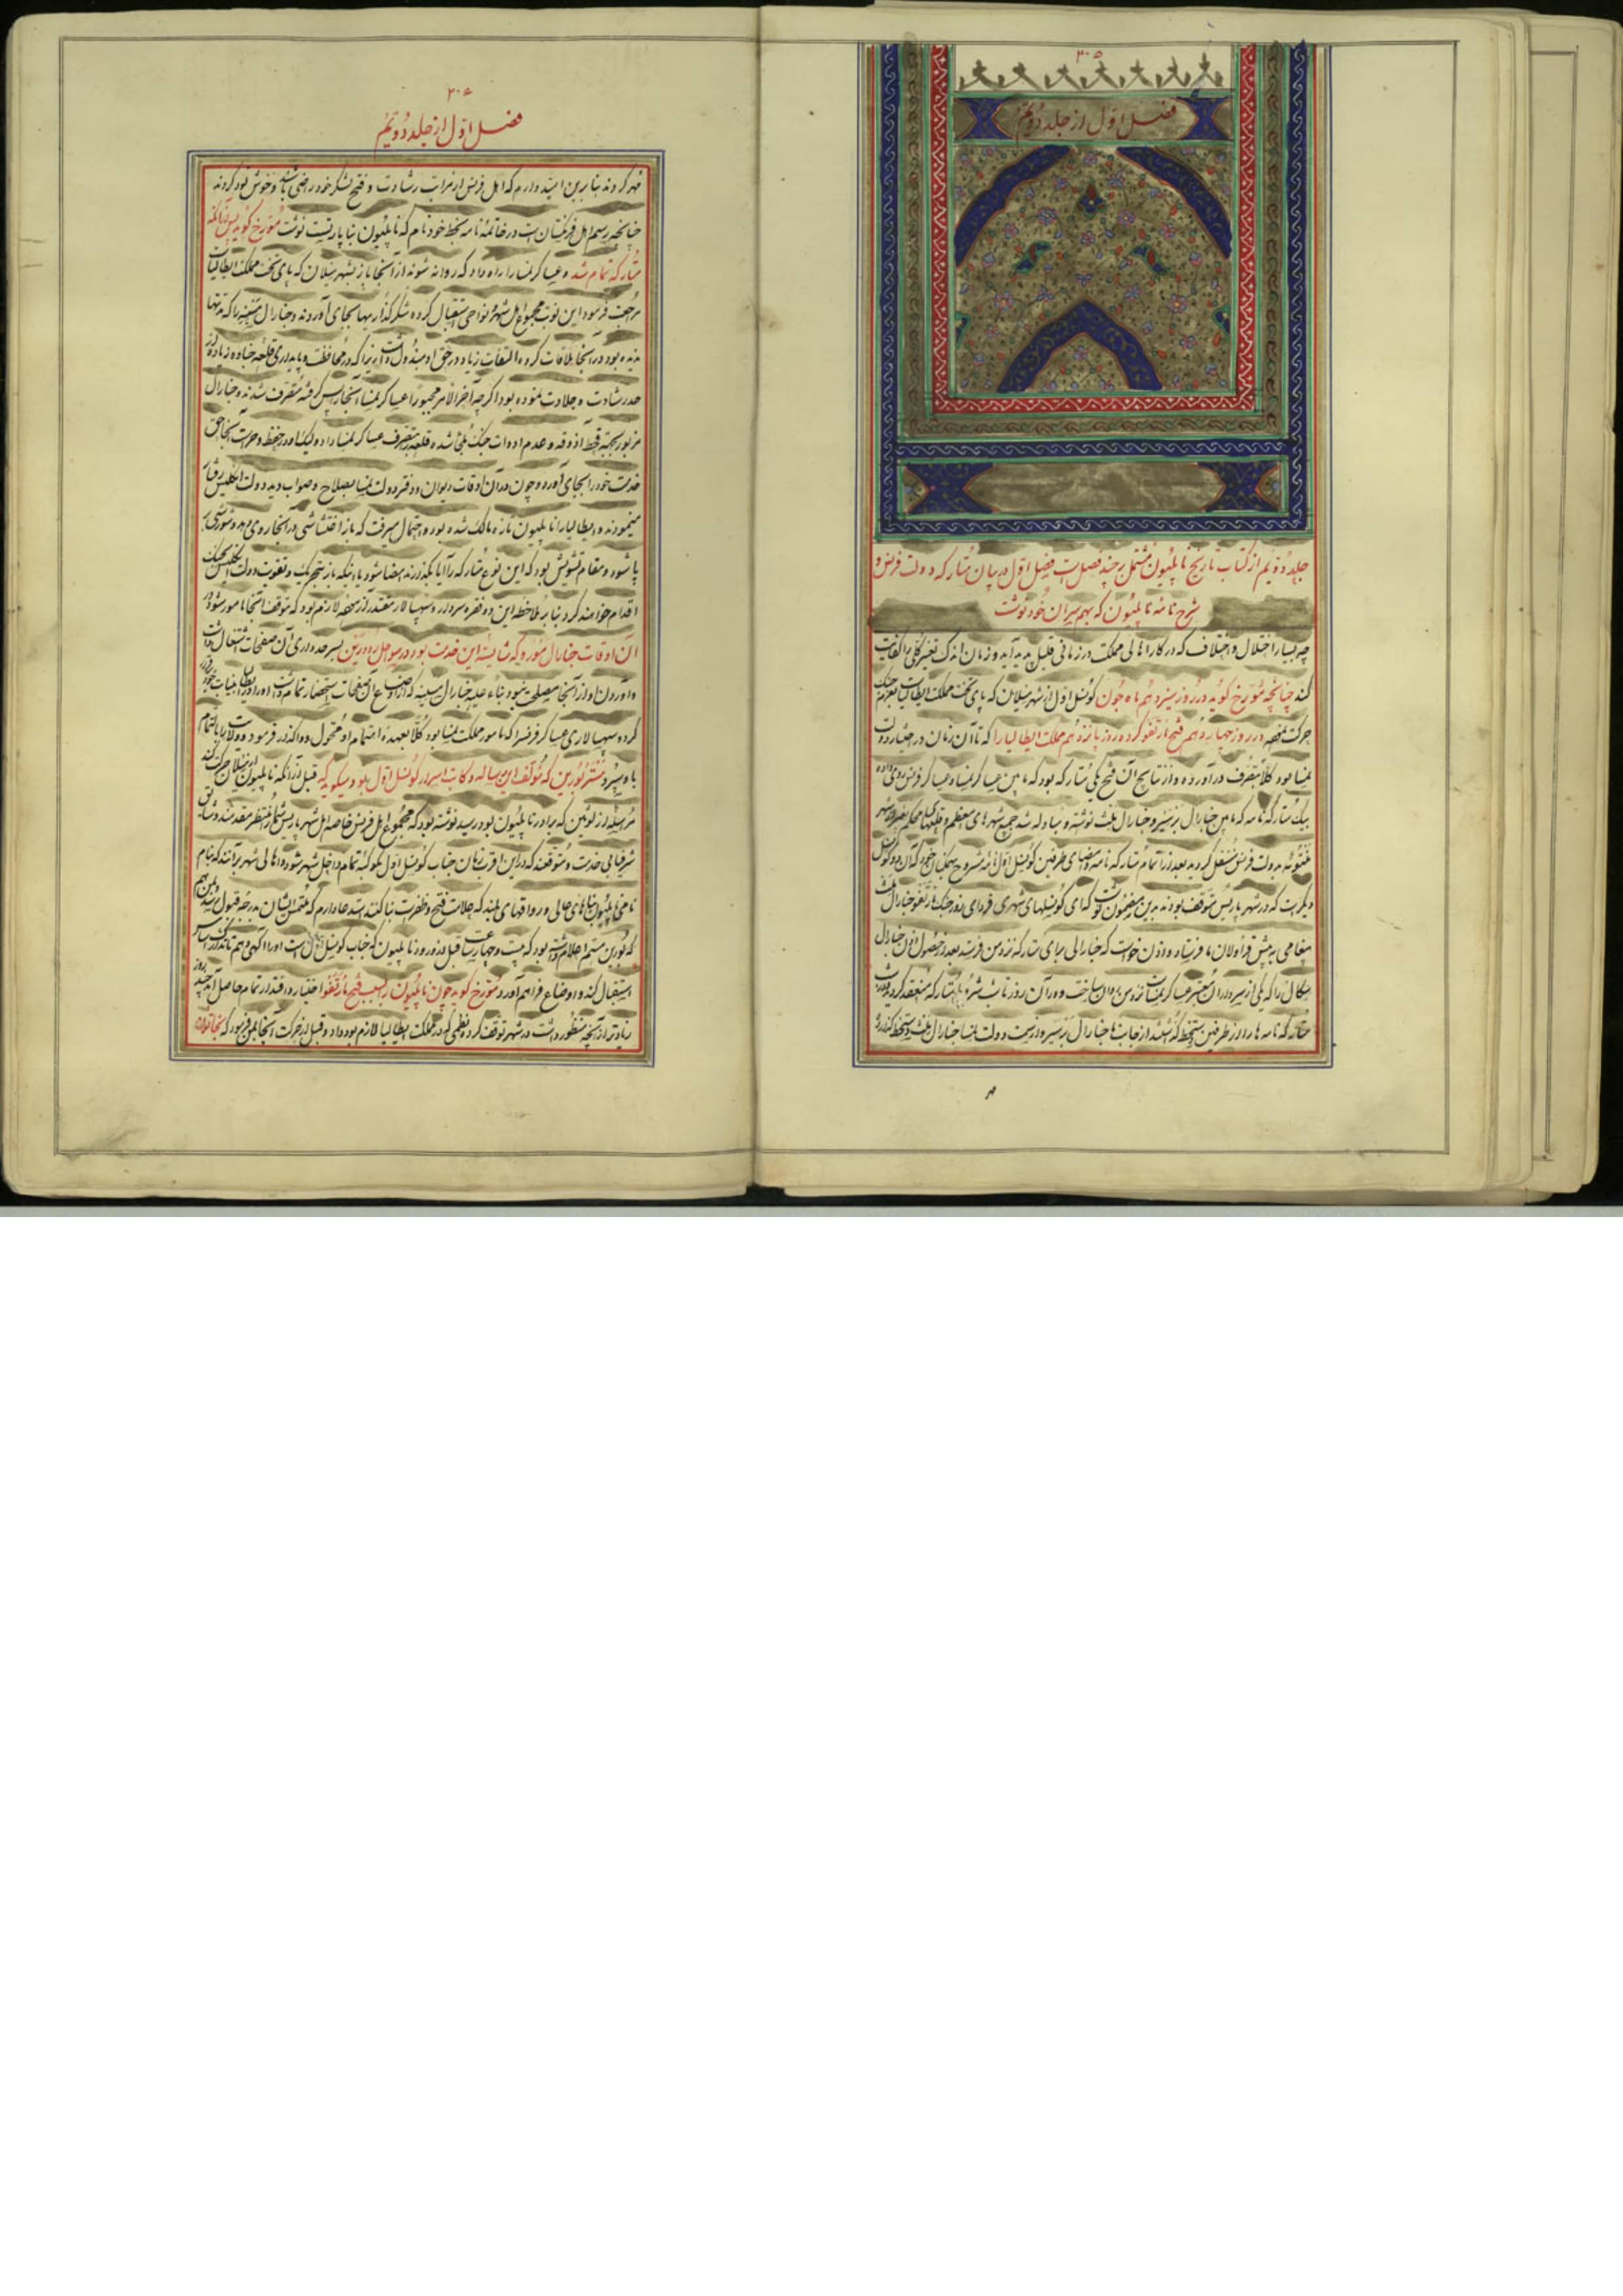 ۳۰۵
فصل اوّل از جلد دویّم
جلد دویّم از کتاب تاریخ ناپلیون مشتمل بر چند فصل است فصل اوّل در بیان متارکه دولت فرنس و
شرح نامه ناپلیون که بهم‌سران خود نوشت
چه بسیار اختلال و اختلاف که در کار اهالی مملکت در زمانی قلیل پدید آید و زمان اندک تغییر کلی را کفایت
کند چنانچه مورخ گوید در روز سیزدهم ماه جون کونسل اوّل از شهر میلان که پای تخت مملکت ایطالیاست بعزم جنک
حرکت نمود در روز چهاردهم فتح مارنغو کرد و روز پانزدهم مملکت ایطالیا را که تا آن زمان در اختیار دولت
نمسا بود کلاً بتصرف در آورد و از نتایج آن فتح یکی متارکه بود که مابین عساکر نمسا و عساکر فرنس روی داده
بیک متارکه نامه که مابین جنارال برتیر و جنارال ملث نوشته و مبادله شد جمیع شهرهای معظم و قلعهای محکم
بدولت فرنس منتقل کردید بعد از اتمام متارکه نامه و امضای طرفین کونسل اوّل
دیگرست که در شهر پاریس متوقف بودند بدین مضمون نوشت که ای کونسلهای شهری فردای روز جنک مارنغو جنارال ملث
پیغامی به پیش قراولان ما فرستاد و اذن خواست که جنارالی برای متارکه نزد من فرستد بعد از حصول اذن جنارال
سکال را که یکی از سرداران معتبر عساکر نمسا
نامه ها را از طرفین دستخط از جانب ما جنارال برتیر و از سمت دولت نمسا جنارال ملث دستخط
۳۰۶
فصل اوّل از جلد دویّم
مهر کردند بنابرین امیدوارم که اهل فرنس از مراتب رشادت و فتح لشکر خود راضی باشند و خوش نود کردند
چنانچه رسم اهل فرنکستان است در خاتمه نامه بخط خود نام که ناپلیون بناپارتست نوشت مورخ گوید پس از آنکه
متارکه تمام شد و عساکر نمسا را راه داد که روانه شوند از آنجا باز بشهر میلان که پای تخت مملکت ایطالیاست
مراجعت فرمود این نوبت مجموع اهل شهر و نواحی استقبال کرده شکر گذاریها بجای آوردند و جنارال مسینه را که مدتها
ندیده بود در آنجا ملاقات کرده التفات زیاد در حق او مبذول داشت زیرا که در محافظت و پایداری قلعه جنا زیاده از
حد رشادت و جلادت نموده بود اگرچه آخر الامر مجبوراً عساکر نمسا آنجا را پس گرفته متصرف شدند و جنارال
مزبور بجهة قحط آذوقه و عدم ادوات جنک ملجا شده قلعه بتصرف عساکر نمسا داد ولیکن در حفظ و حراست آنجا حق
خدمت خود را بجای آورد و چون در آن اوقات دیوان و دفتر دولت نمسا بصلاح و صوابدید دولت انگلیس رفتار
مینمودند و ایطالیا را ناپلیون تازه مالک شده بود و احتمال میرفت که باز اغتشاشی در آنجا روی دهد و شورشی بر
پا شود و مقام تشویش بود که این نوع متارکه را آیا بگذارند امضا شود یا اینکه باز بتحریک و تقویت دولت انگلیس بجنک
اقدام خواهند کرد بنابر ملاحظه این دو فقره سردار و سپهسالار مقتدر از همه لازم بود که متوقف آنجا مامور شود در
آن اوقات جنارال موره که شایسته این خدمت بود در سواحل رود رین بسرحدداری آن صفحات اشتغال داشت
و آوردن او از آنجا مصلحت نبود بناءً علیه جنارال مسینه که از اوضاع آن صفحات استحضار تمام داشت
کرده سپهسالاری عساکر فرنسرا که مامور مملکت نمسا بود کلاً بعهده اهتمام او محول و واگذار فرمود
باو سپرد مستر بورین که مؤلف این رساله و کاتب اسرار کونسل اوّل بود میگوید که قبل از آنکه ناپلیون از میلان حرکت کند
مرسله از لوسین که برادر ناپلیون بود رسید نوشته بود که مجموع اهل فرنس خاصه اهل شهر پاریس شما را منتظر مقدمند و مشتاق
شرفیابی خدمت و متوقعند که در این اقرب زمان جناب کونسل اوّل بکوکبه تمام داخل شهر شود و اهالی شهر بر آنند که بنام
نامی ناپلیون بناهای عالی و رواقهای بلند که علامات فتح و ظفرست بنا کنند استدعا دارم که ملتمس ایشان بدرجه قبول رسد
که بورین هستم اعلام داشته بود که بیست و چهار ساعت قبل از ورود ناپلیون که جناب کونسل اوّل است او را آگهی دهم تا تدارک
استقبال کند و اوضاع فراهم آورد مورخ گوید چون ناپلیون را بسبب فتح مارنغو اختیار و اقتدار تمام حاصل آمد چند روز
زیادتر از آنچه منظور داشت در شهر توقف کرد و نظمی که در مملکت ایطالیا لازم بود داد و قبل از حرکت آنجا بمن فرمود که